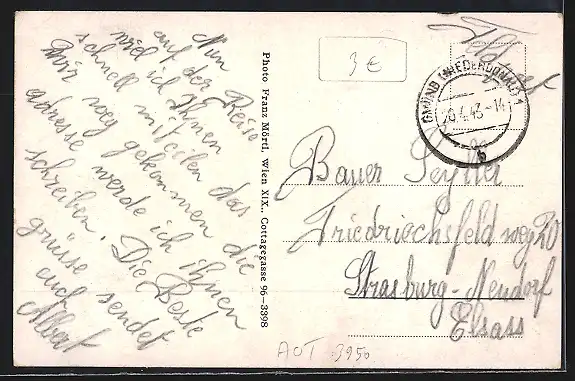 Nun
auf der Reise
will ich Ihnen
schnell mitteilen das
wir weg gekommen die
adresse werde ich ihnen
schreiben. Die Beste
grüsse sendet
euch
Albert
Photo Franz Mörtl, Wien XIX., Cottagegasse 96-3398
3 €
Feldpost
GMÜND (NIEDERDONAU) 1
20.4.43-14
b
Bauer Seyller
Friedrichsfeld weg 20
Strasburg-Neudorf
Elsass
AOT 3950